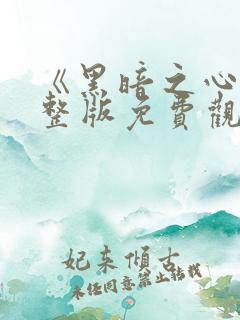 《黑暗之心
整版免費觀
妃来傾古
未经同意禁止转载